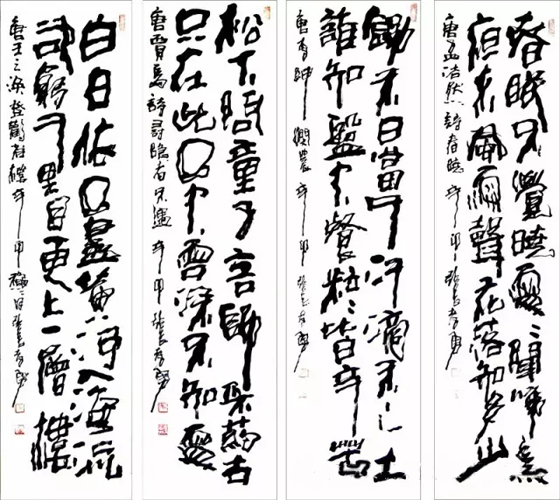 春眠不覺曉處〻聞啼鳥
夜来風雨聲花落知多少
唐孟浩然詩春曉
鋤禾日當午汗滴禾下土
誰知盤中餐粒〻皆辛苦
唐李紳憫農
松下問童子言師采藥去
只在此山中雲深不知處
唐賈島詩尋隱者不遇
白日依山盡黃河入海流
欲窮千里目更上一層樓
唐王之渙登鸛雀樓